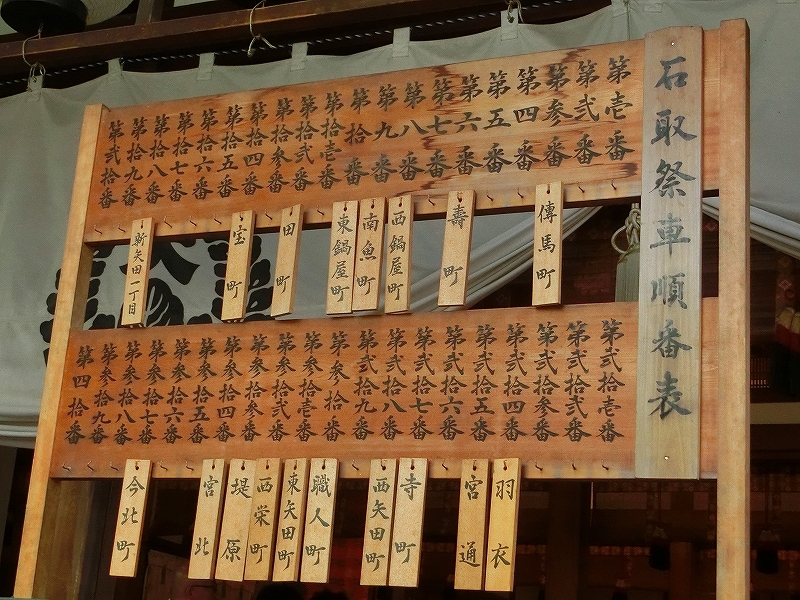 石取祭車順番表
第壱番
第弐番
第参番
第四番
第五番
第六番
第七番
第八番
第九番
第拾番
第拾壱番
第拾弐番
第拾参番
第拾四番
第拾五番
第拾六番
第拾七番
第拾八番
第拾九番
第弐拾番
傳馬町
壽町
西鍋屋町
南魚町
東鍋屋町
田町
宝町
新矢田一丁目
第弐拾壱番
第弐拾弐番
第弐拾参番
第弐拾四番
第弐拾五番
第弐拾六番
第弐拾七番
第弐拾八番
第弐拾九番
第参拾番
第参拾壱番
第参拾弐番
第参拾参番
第参拾四番
第参拾五番
第参拾六番
第参拾七番
第参拾八番
第参拾九番
第四拾番
羽衣
宮通
寺町
西矢田町
職人町
東矢田町
西栄町
堤原
宮北
今北町